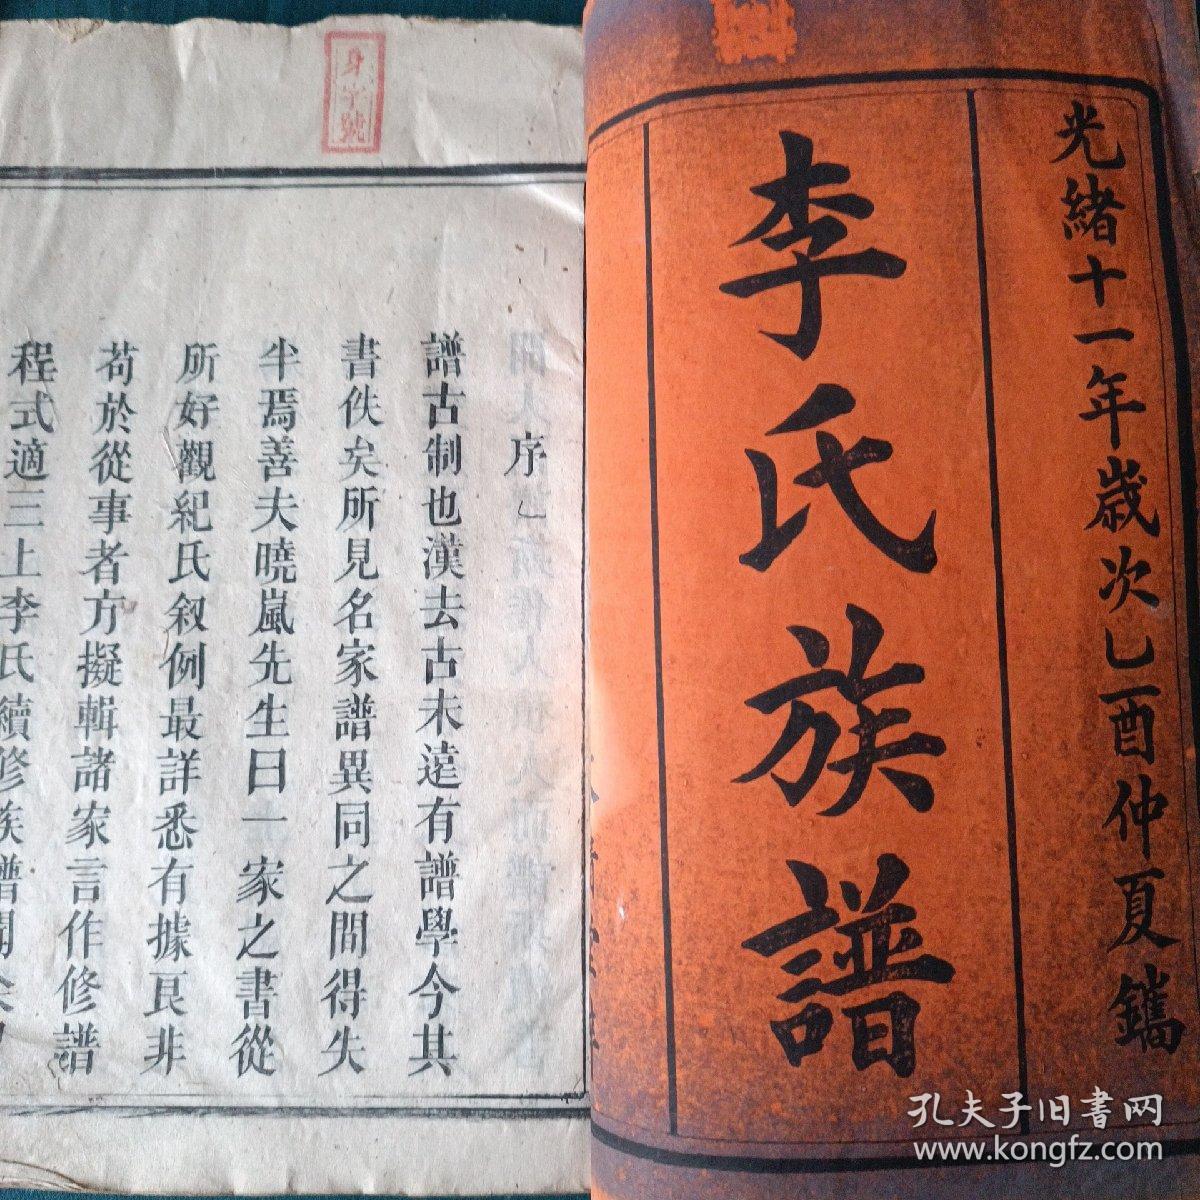 光緒十一年歲次乙酉仲夏鐫
李氏族譜
身字號
序
譜古制也漢去古未遠有譜學今其
書佚矣所見名家譜異同之間得失
半焉善夫曉嵐先生曰一家之書從
所好觀紀氏敘例最詳悉有據良非
苟於從事者方擬輯諸家言作修譜
程式適三上李氏續修族譜聞余
孔夫子旧書网
www.kongfz.com